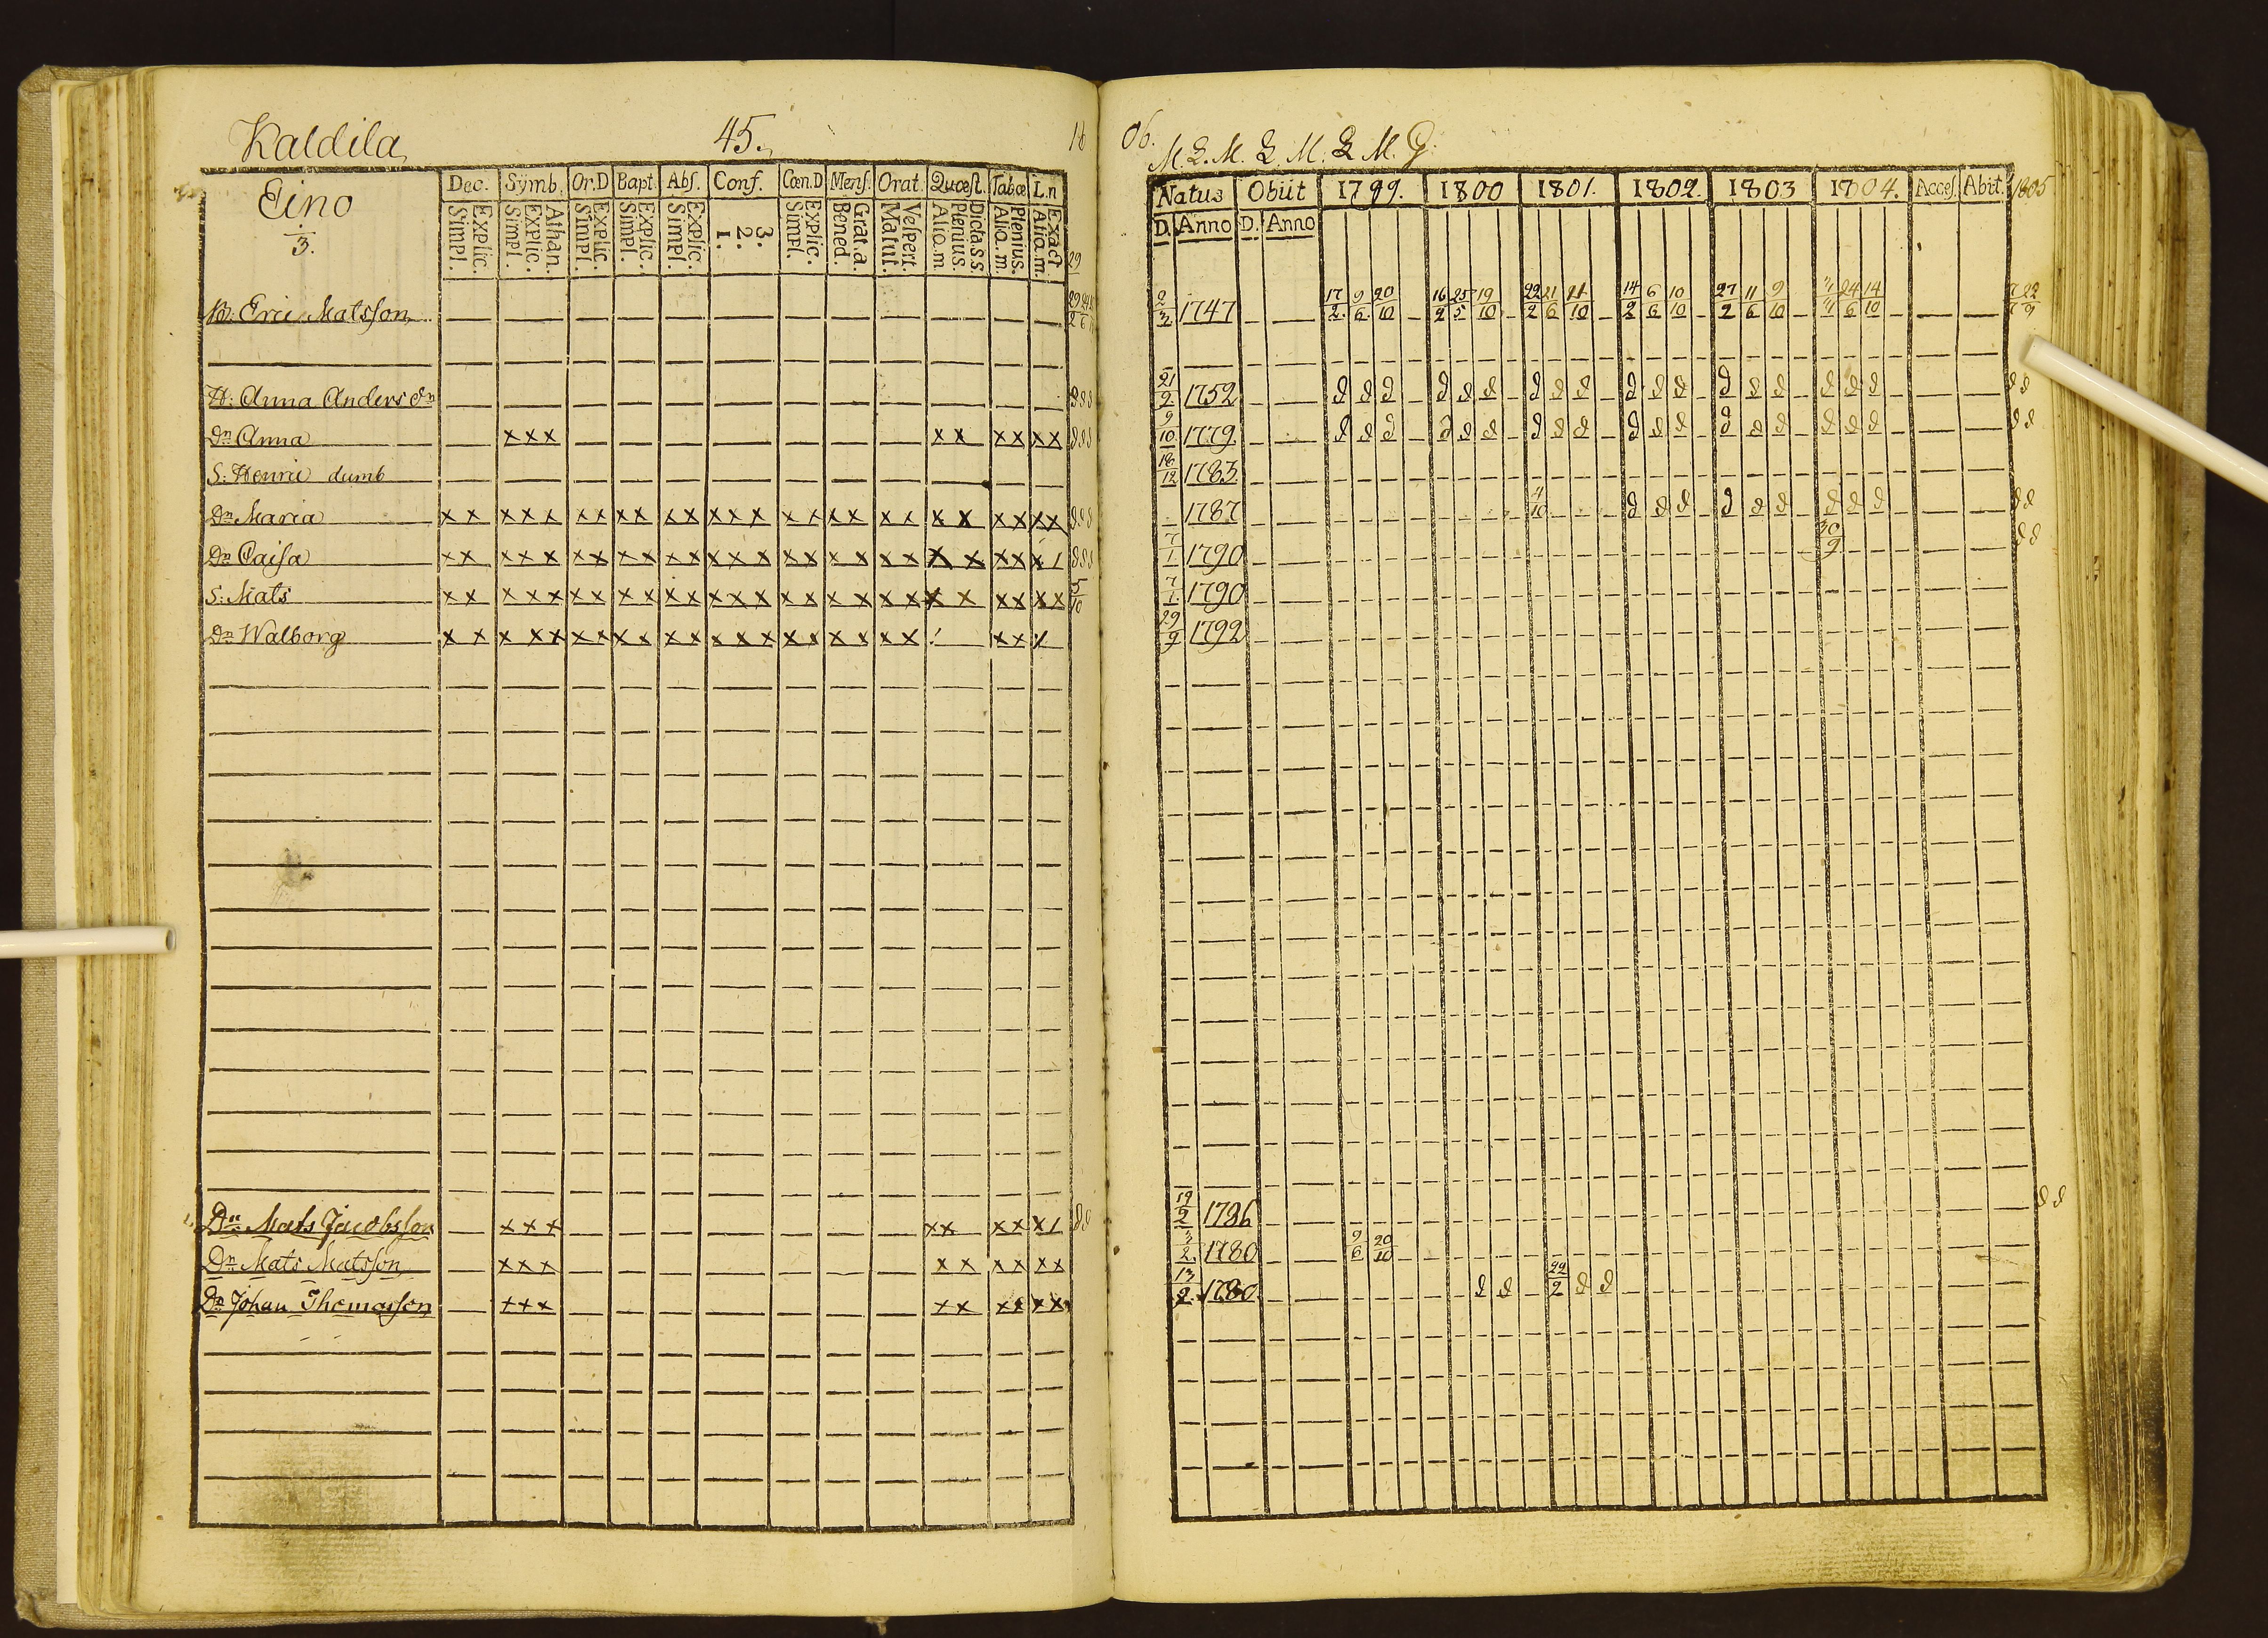 Kaldila 45. 18
Eino
3.
Dec. Symb. Or.D Bapt. Abſ. Conf. Cœn.D Menſ. Orat. Quæſt. Tabæ L.n
Explic. Simpl. Athan. Explic. Simpl. Explic. Simpl. Explic. Simpl. Explic. Simpl. 3. 2. 1. Explic. Simpl. Grat.a. Bened. Veſpert. Matut. Dicta.s.s Plenius. Aliq.m Plenius. Aliq.m. Exact Aliq.m. 29
Eric Matsſon
H: Anna Anders dr
Dr Anna xxx xx xx xx
S: Henric dumb
Dr Maria xx xxx xx xx xx xxx xx xx xx xx xx xx
Dr Caiſa xx xxx xx xx xx xxx xx xx xx xx xx x/
S: Mats xx xxx xx xx xx xxx xx xx xx xx xx xx 5/10
Dr Walborg xx xxx xx xx xx xxx xx xx xx / xx x
Dn Mats Jacobsſon xxx xx xx x/
Dn Mats Matsſon xxx xx xx xx
Dn Johan Thomasſon xxx xx xx xx
06.
M. L. M. L. M. L. M. G.
Natus Obiit 1799. 1800 1801. 1802. 1803 1804. Acceſ. Abit. 1805
D. Anno D. Anno
2/3 1747 17/2 9/6 20/10 16/2 25/5 19/10 22/2 21/6 11/10 14/2 6/6 10/10 27/2 11/6 9/10 24/6 14/10
21/2 1752
9/10 1779
18/12 1783
1787 4/10
7/1 1790 30/9
7/1 1790
29/9 1792
19/2 1786
3/2 1780 9/6 20/10
13/2 1780 22/2